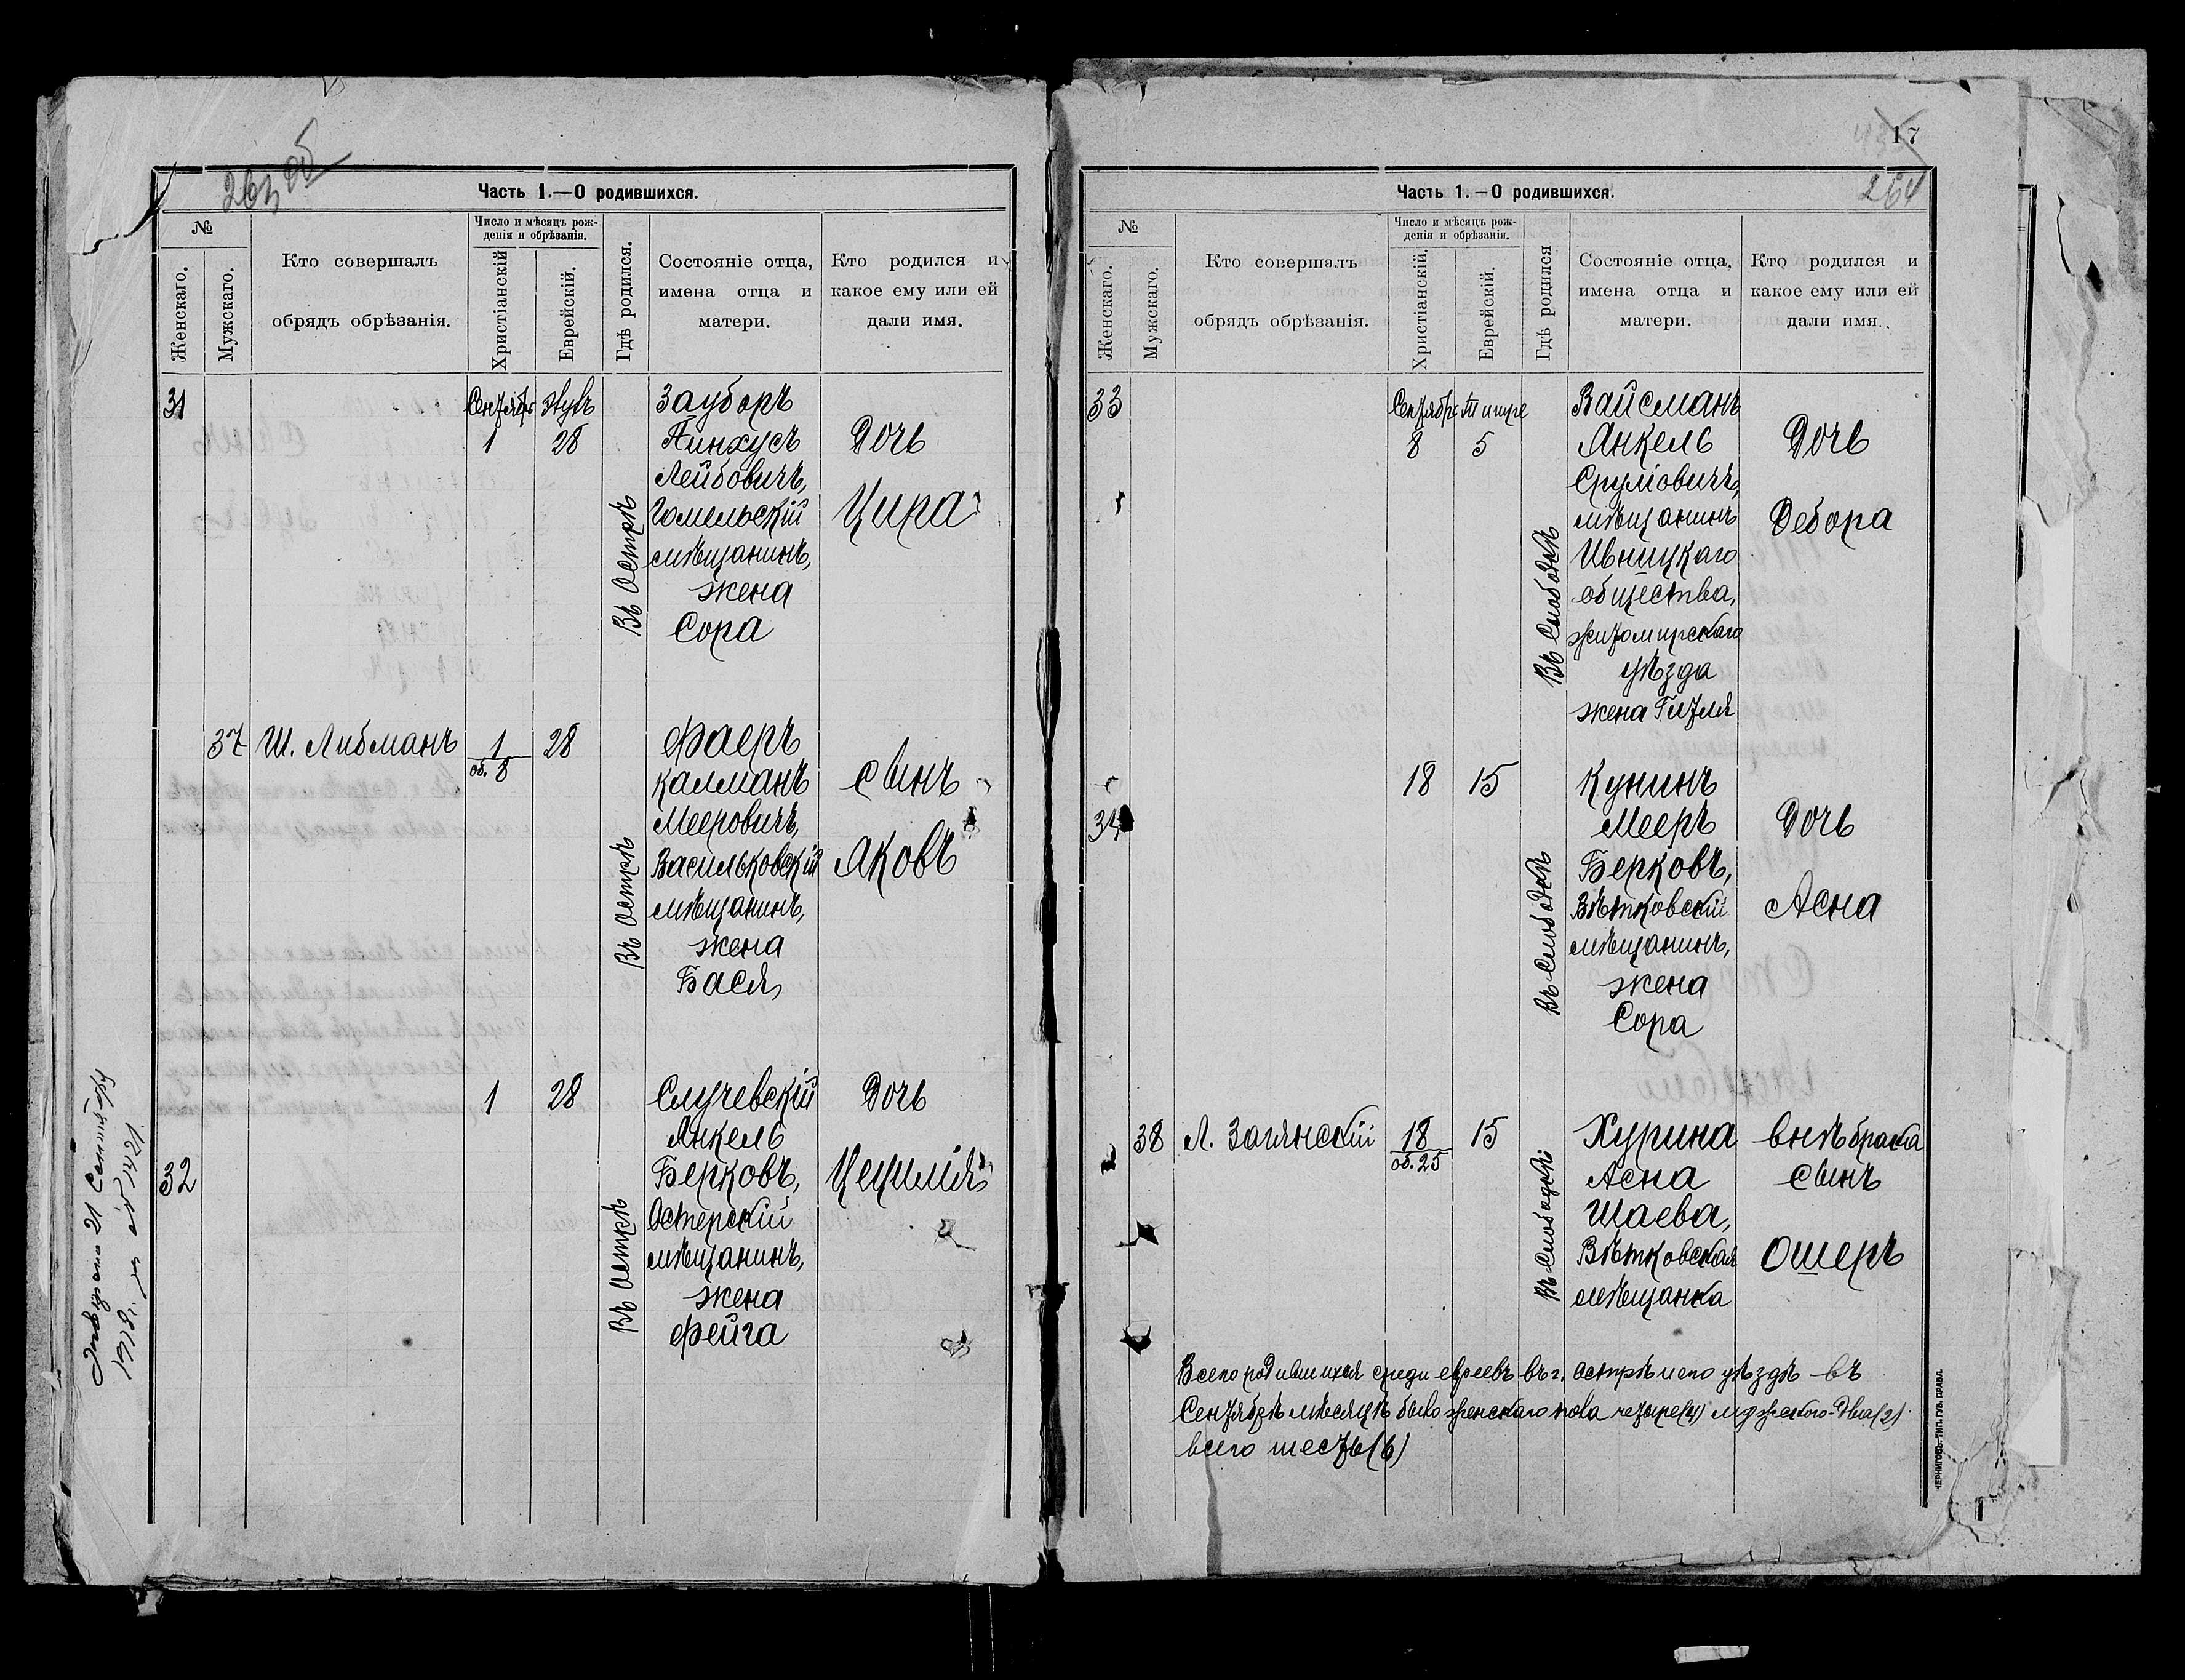 263 об
Часть 1.—О родившихся.
№
Женскаго.
Мужскаго.
Кто совершалъ
обрядъ обрѣзанія.
Число и мѣсяцъ рож-
денія и обрѣзанія.
Христіанскій
Еврейскій.
Гдѣ родился.
Состояніе отца,
имена отца и
матери.
Кто родился и
какое ему или ей
дали имя.
31
Сентябрь
1
Элулъ
28
Въ Острѣ
Зауборъ
Пинхусъ
Лейбовичъ,
Гомельскій
мѣщанинъ,
жена
Сора
Дочь
Цира
37
Ш. Либманъ
1
об. 8
28
Въ Острѣ
Фаеръ
Калманъ
Мееровичъ,
Васильковскій
мѣщанинъ,
жена
Бася
сынъ
Яковъ
32
1
28
Въ Острѣ
Случевскій
Янкель
Берковъ,
Остерскій
мѣщанинъ,
жена
Фейга
Дочь
Цецилія
21 Сентября
1918 г. за № 1421.
17
264
Часть 1.—О родившихся.
№
Женскаго.
Мужскаго.
Кто совершалъ
обрядъ обрѣзанія.
Число и мѣсяцъ рож-
денія и обрѣзанія.
Христіанскій.
Еврейскій.
Гдѣ родился
Состояніе отца,
имена отца и
матери.
Кто родился и
какое ему или ей
дали имя.
33
Сентябрь
8
Тишре
5
Въ Слободкѣ
Вайсманъ
Янкель
Сруліовичъ,
мѣщанинъ
Ивницкаго
общества,
Житомирскаго
уѣзда
жена Гитля
Дочь
Дебора
34
18
15
Въ Слободкѣ
Кунинъ
Мееръ
Берковъ,
Вѣтковскій
мѣщанинъ,
жена
Сора
Дочь
Асна
38
Л. Загянскій
18
об. 25
15
Въ Слободкѣ
Хурина
Асна
Шаева,
Вѣтковская
мѣщанка
внѣ брака
сынъ
Ошеръ
Всего родившихся среди евреевъ въ г. Острѣ и по уѣздѣ въ
Сентябрѣ мѣсяцѣ было женскаго пола четыре (4) мужского - два (2)
всего шесть (6)
ЧЕРНИГОВЪ. ТИП. ГУБ. ПРАВЛ.